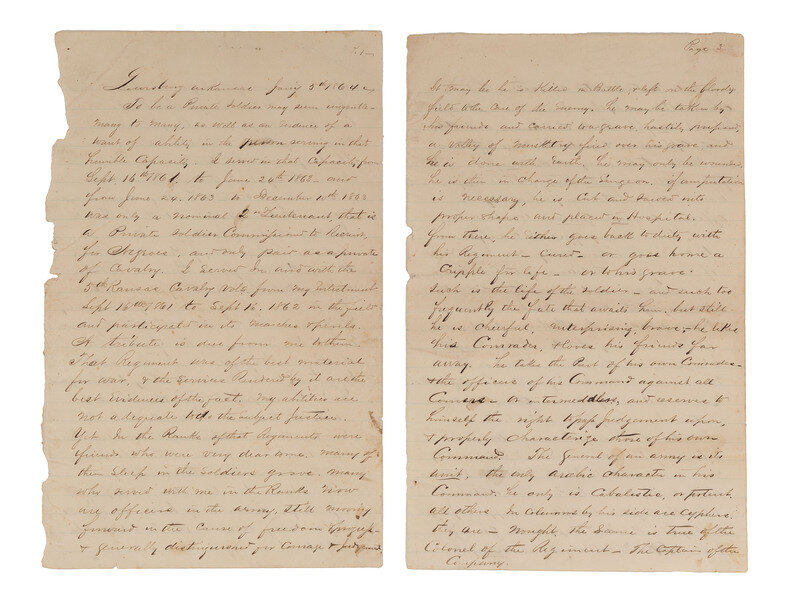 P. 1—
Lewisburg Arkansas Jany 5th 1864.
To be a Private Soldier may seem ungentle-
manly to many, as well as an evidence of a
want of ability, in the person serving in that
humble Capacity. I served in that Capacity from
Sept. 16th 1861 to June 24th 1863 and
from June 24. 1863 to December 10th 1863
was only a nominal 2nd Lieutenant, that is
a Private Soldier Commissioned to Recruit
for Negroes, and only paid as a private
of Cavalry. I served in and with the
5th Kansas Cavalry Vols. from my Enlistment
Sept 16th 1861 to Sept 16. 1862 in the field
and participated in its Marches & perils.
A tribute is due from me to them.
That Regiment was of the best material
for war, & the services Rendered by it are the
best evidences of the fact. My abilities are
not adequate to do the subject Justice.
Yet In the Ranks of that Regiment were
friends who were very dear to me. Many of
them Sleep in the Soldiers grave. Many
who served with me in the Ranks Now
are officers in the army, Still moving
forward in the Cause of freedom &
& generally distinguished for Courage & Judgment
Page 2
It may be he is Killed in Battle, & left on the bloody
field to the Care of the enemy. He may be taken by
his friends and carried to a grave, hastily prepared,
a volley of Musketry fired over his grave, and
he is done with Earth. he may only be wounded
he is then in Charge of the Surgeon. if amputation
is necessary, he is Cut and Sawed into
proper Shape and placed in Hospital.
from there, he either goes back to duty with
his Regiment — Cured — or goes home a
Cripple for life — or to his grave.
Such is the life of the Soldier — and such too
frequently the fate that awaits him, but still
he is cheerful, enterprising, brave — he likes
his Comrades, & loves his friends far
away. he takes the Part of his own Comrades—
& the officers of his Command against all
Comers — or intermeddlers, and reserves to
himself the right to pass Judgement upon,
& properly Characterize those of his own
Command. The General of an army is its
unit, the only arabic character in his
Command. he only is Cabalistic, or potent,
all others in Columns by his side are Cyphers.
they are — Nought, the Same is true of the
Colonel of the Regiment — The Captain of the
Company.